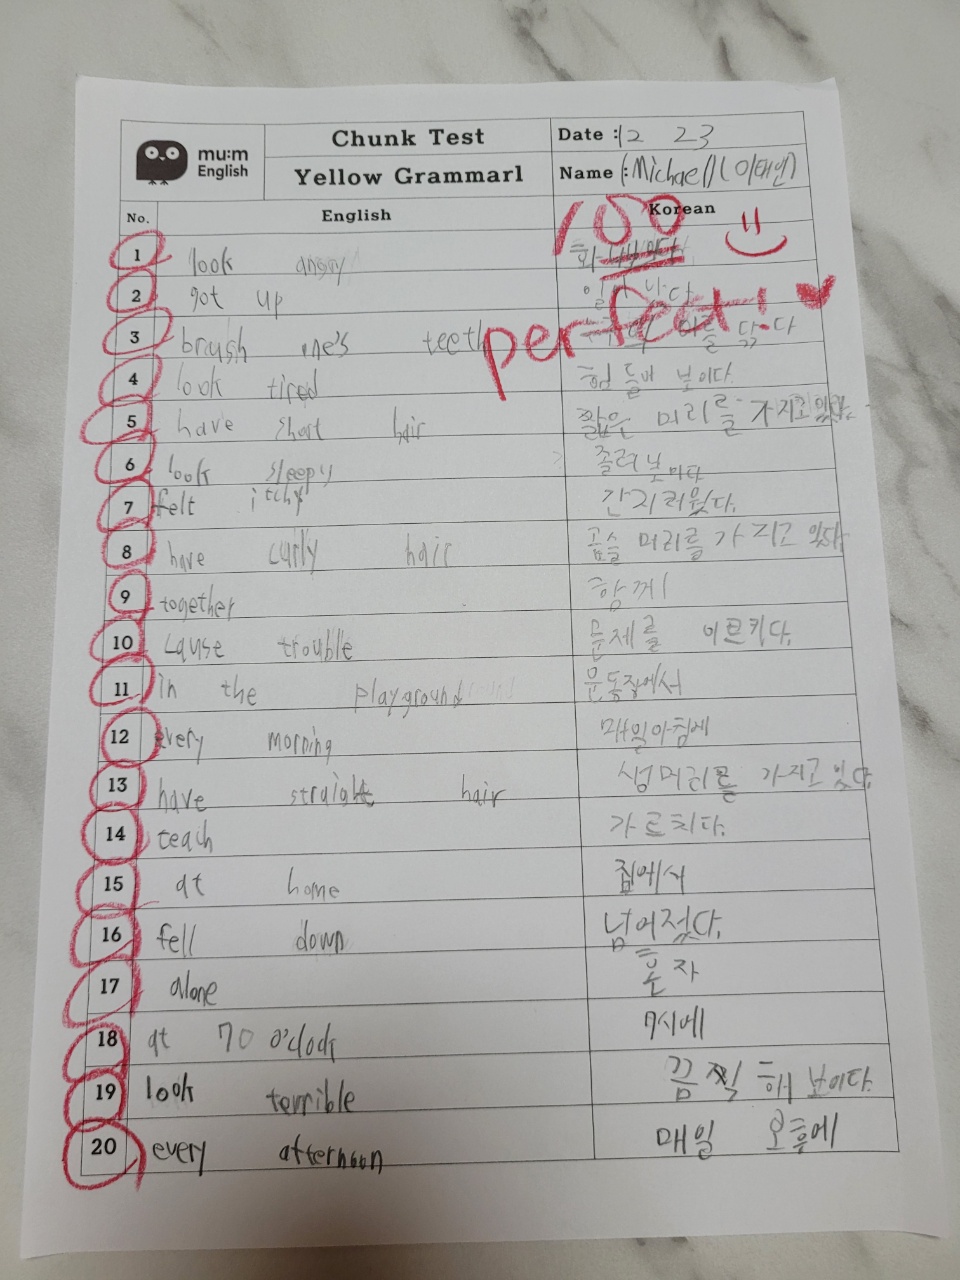 mu:m
English
Chunk Test
Yellow Grammar1
Date : 12 23
Name : Michael (이태인)
No. English Korean
100
perfect!
1 look angry
2 got up
3 brush one's teeth 닦다
4 look tired 힘들어 보이다.
5 have short hair 짧은 머리를 가지고 있다.
6 look sleepy 졸려 보이다
7 felt itchy 간지러웠다.
8 have curly hair 곱슬 머리를 가지고 있다.
9 together 함께
10 cause trouble 문제를 이르키다.
11 in the playground 운동장에서
12 every morning 매일아침에
13 have straight hair 생머리를 가지고 있다.
14 teach 가르치다.
15 at home 집에서
16 fell down 넘어졌다.
17 alone 혼자
18 at 70 o'clock 7시에
19 look terrible 끔찍해 보이다.
20 every afternoon 매일 오후에